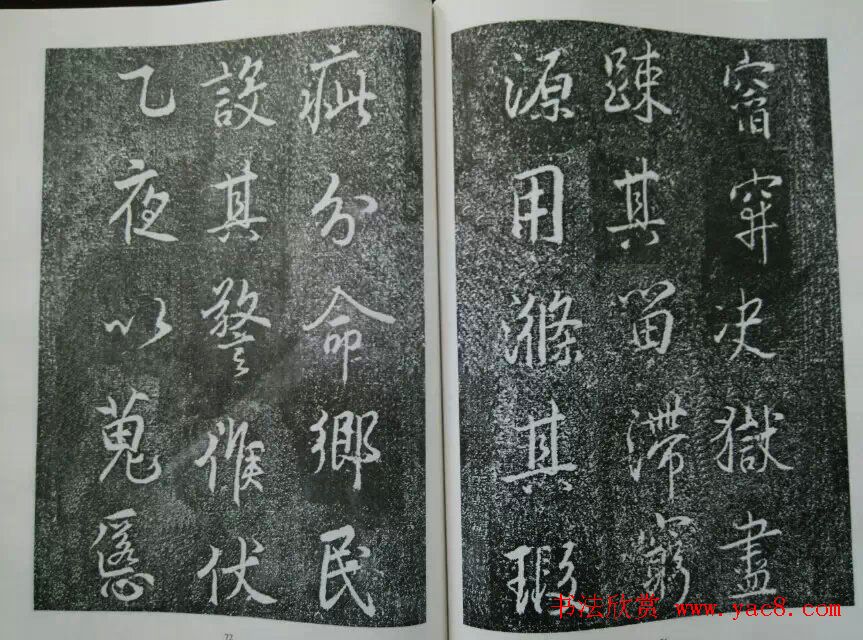 窬穽决獄盡
踈其留滯窮
源用滌其瑕
疵分命鄉民
設其警候伏
乙夜以蒐慝
77
书法欣赏 www.yac8.com